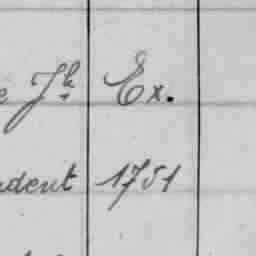 e Jh Ex.
dent 1751